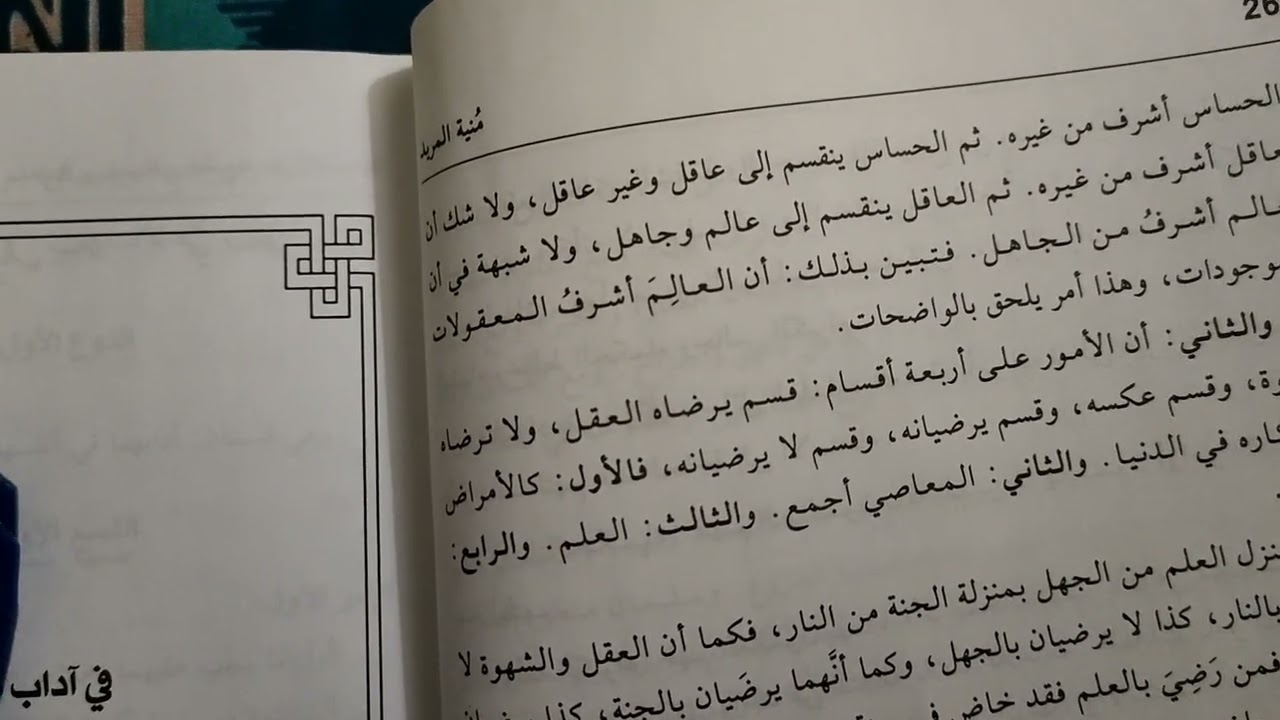 26
مُنية المريد
الحساس أشرف من غيره. ثم الحساس ينقسم إلى عاقل وغير عاقل، ولا شك أن
عاقل أشرف من غيره. ثم العاقل ينقسم إلى عالم وجاهل، ولا شبهة في أن
أشرفُ من الجاهل. فتبين بذلك: أن العالِمَ أشرفُ المعقولات
وهذا أمر يلحق بالواضحات.
والثاني: أن الأمور على أربعة أقسام: قسم يرضاه العقل، ولا ترضاه
وقسم عكسه، وقسم يرضيانه، وقسم لا يرضيانه، فالأول: كالأمراض
في الدنيا. والثاني: المعاصي أجمع. والثالث: العلم. والرابع:
العلم من الجهل بمنزلة الجنة من النار، فكما أن العقل والشهوة لا
بالنار، كذا لا يرضيان بالجهل، وكما أنَّهما يرضَيان بالجنة، كذا
فمن رَضِيَ بالعلم فقد خاض في
في آداب